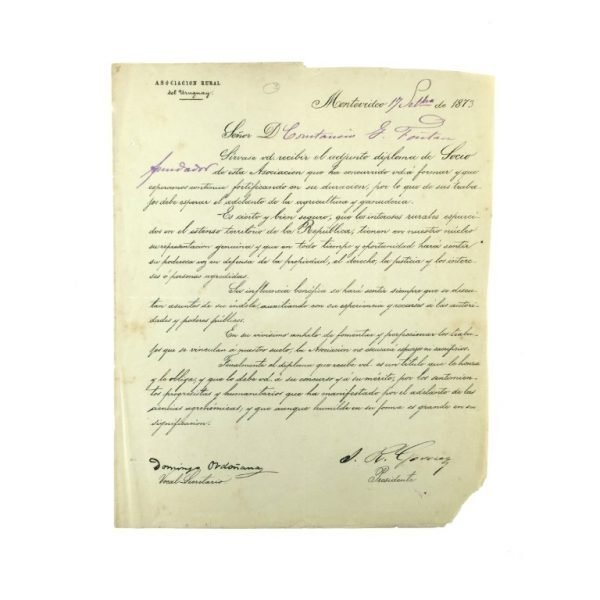 ASOCIACION RURAL
del Uruguay.
Montevideo 17 Setbre de 1873
Señor D Constancio G. Fontan
Sírvase vd. recibir el adjunto diploma de Socio
fundador de esta Asociacion que ha concurrido vd. a formar y que
esperamos continue fortificando en su duracion, por lo que de sus traba-
jos debe esperar el adelanto de la agricultura y ganaderia.
Es cierto y bien seguro, que los intereses rurales esparci-
dos en el estenso territorio de la República, tienen en nuestro núcleo
su representacion genuina y que en todo tiempo y oportunidad hará sentir
su poderosa voz en defensa de la propiedad, el derecho, la justicia y los intere-
ses ó personas agredidas.
Su influencia benéfica se hará sentir siempre que se discu-
tan asuntos de su índole, auxiliando con su esperiencia y recursos a las autori-
dades y poderes públicos.
En su vivísimo anhelo de fomentar y perfeccionar los traba-
jos que se vinculan a nuestro suelo, la Asociacion no escusará esfuerzo ni sacrificios.
Finalmente el diploma que recibe vd. es un título que le honra
y le obliga, y que lo debe vd. á su concurso y á su mérito, por los sentimien-
tos progresistas y humanitarios que ha manifestado por el adelanto de las
ciencias agronómicas, y que aunque humilde en su forma es grande en su
significacion.
Domingo Ordoñana
Vocal-Secretario
J. R. Gomez
Presidente